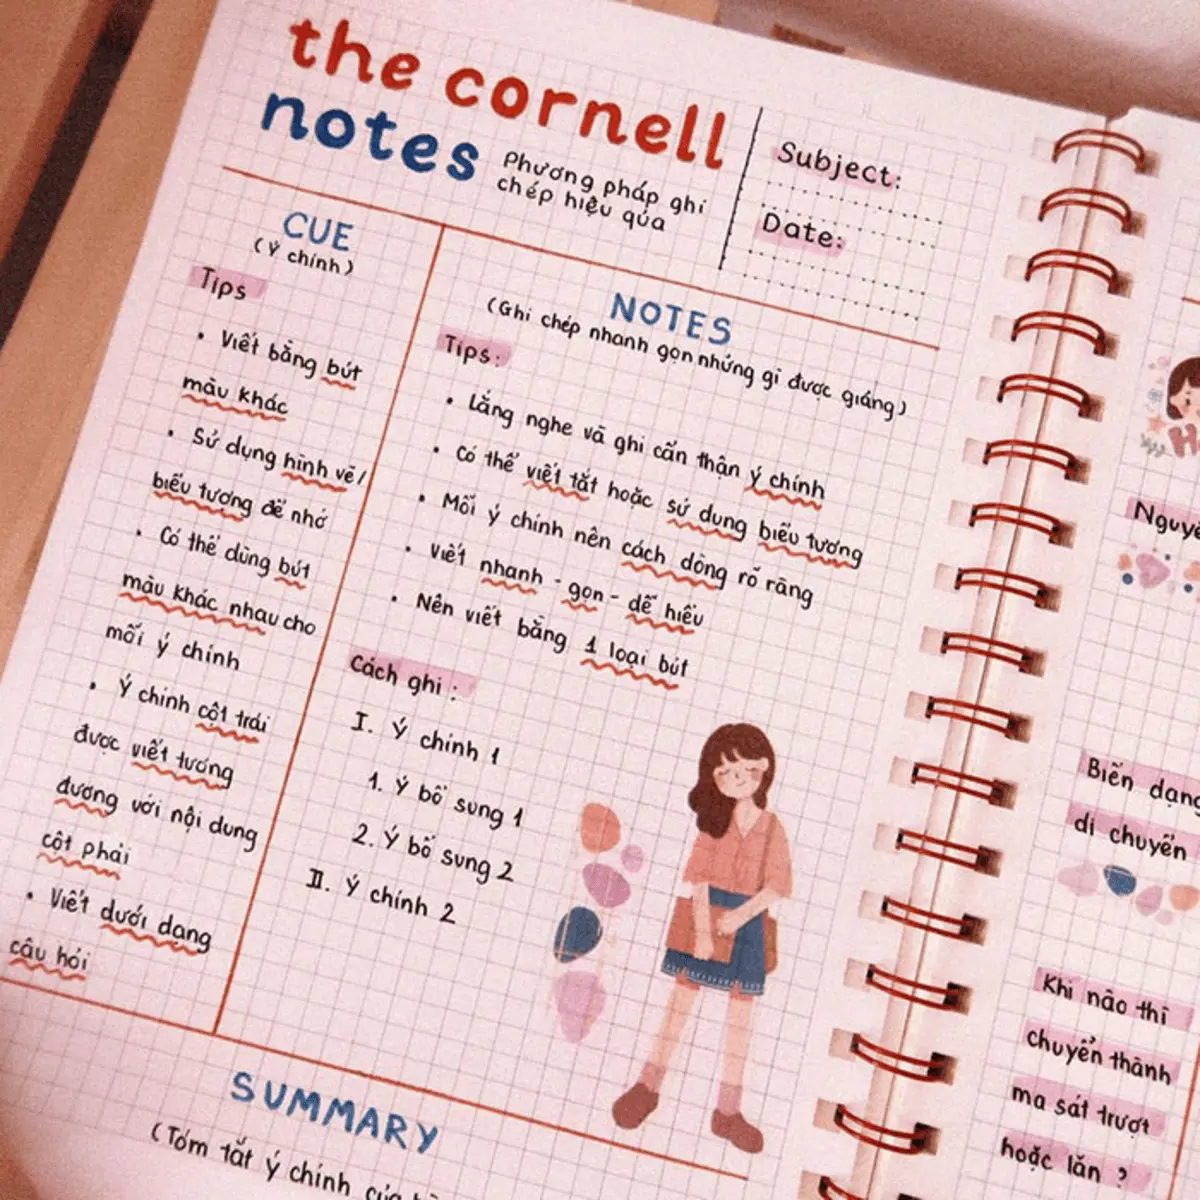 the cornell
notes
Phương pháp ghi
chép hiệu qủa
Subject:
Date:
CUE
(Ý chính)
Tips
• Viết bằng bút
màu khác
• Sử dụng hình vẽ/
biểu tượng để nhớ
• Có thể dùng bút
màu khác nhau cho
mỗi ý chính
• Ý chính cột trái
được viết tương
đương với nội dung
cột phải
• Viết dưới dạng
câu hỏi
NOTES
(Ghi chép nhanh gọn những gì được giảng)
Tips:
• Lắng nghe và ghi cẩn thận ý chính
• Có thể viết tắt hoặc sử dụng biểu tượng
• Mỗi ý chính nên cách dòng rõ ràng
• Viết nhanh - gọn - dễ hiểu
• Nên viết bằng 1 loại bút
Cách ghi:
I. Ý chính 1
1. Ý bổ sung 1
2. Ý bổ sung 2
II. Ý chính 2
SUMMARY
(Tóm tắt ý chính của
Biến dạng
di chuyển
Khi nào thì
chuyển thành
ma sát trượt
hoặc lăn ?